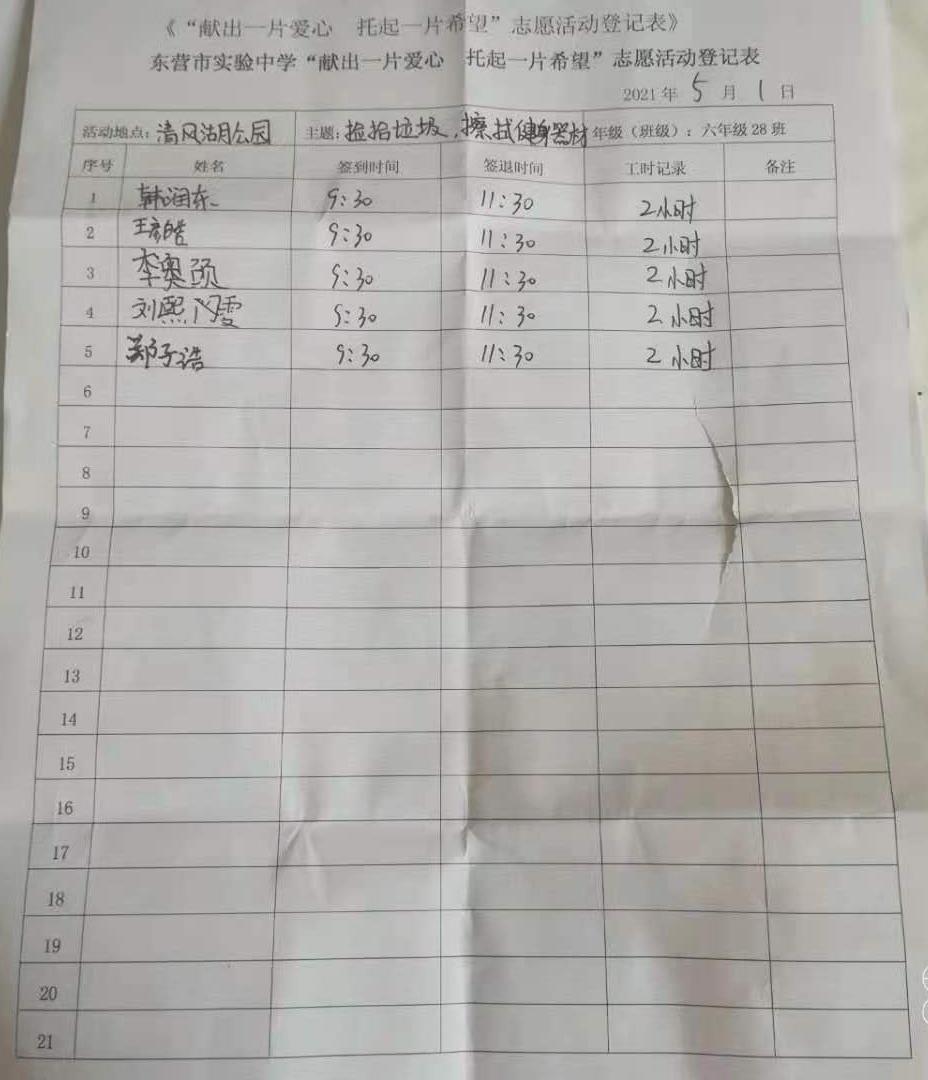 《“献出一片爱心 托起一片希望”志愿活动登记表》
东营市实验中学“献出一片爱心 托起一片希望”志愿活动登记表
2021年 5 月 1 日
活动地点：清风湖公园 主题：捡拾垃圾，擦拭健身器材 年级（班级）：六年级28班
序号 姓名 签到时间 签退时间 工时记录 备注
1 韩润东 9:30 11:30 2小时
2 王彦皓 9:30 11:30 2小时
3 李奥颀 9:30 11:30 2小时
4 刘熙 雯 9:30 11:30 2小时
5 郑子浩 9:30 11:30 2小时
6
7
8
9
10
11
12
13
14
15
16
17
18
19
20
21